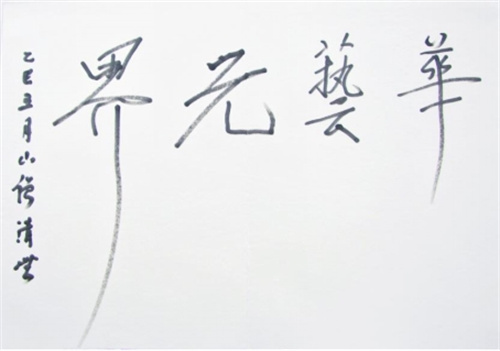 華藝无界
乙巳五月山僧清